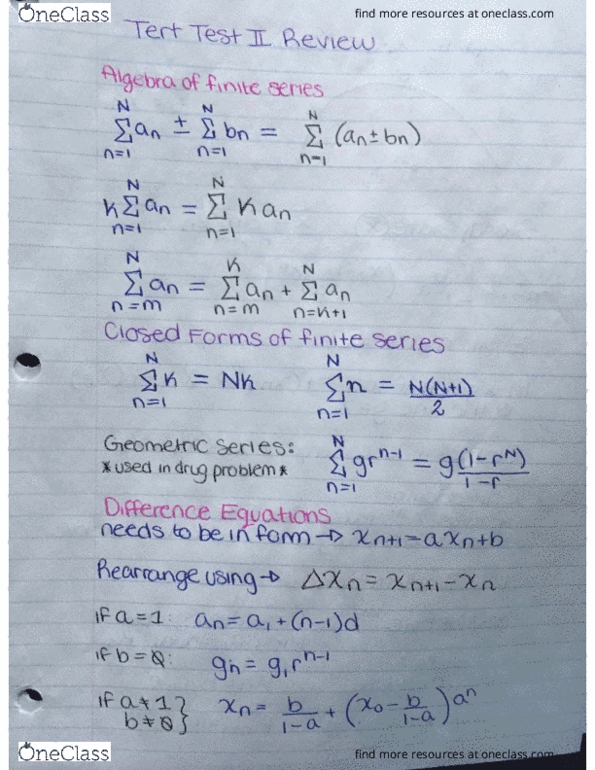 OneClass
find more resources at oneclass.com
Tert Test II Review
Algebra of finite series
N Σ n=1 an ± N Σ n=1 bn = N Σ n=1 (an ± bn)
K N Σ n=1 an = N Σ n=1 K an
N Σ n=m an = K Σ n=m an + N Σ n=K+1 an
Closed Forms of finite series
N Σ n=1 K = NK
N Σ n=1 n = N(N+1) / 2
Geometric Series:
*used in drug problem*
N Σ n=1 gr^n-1 = g(1-r^N) / 1-r
Difference Equations
needs to be in form → xn+1 = axn+b
Rearrange using → Δxn = xn+1 - xn
if a=1: an = a1 + (n-1)d
if b=0: gn = g1r^n-1
if a≠1 }
b≠0 }
xn = b / 1-a + (x0 - b / 1-a) a^n
OneClass
find more resources at oneclass.com